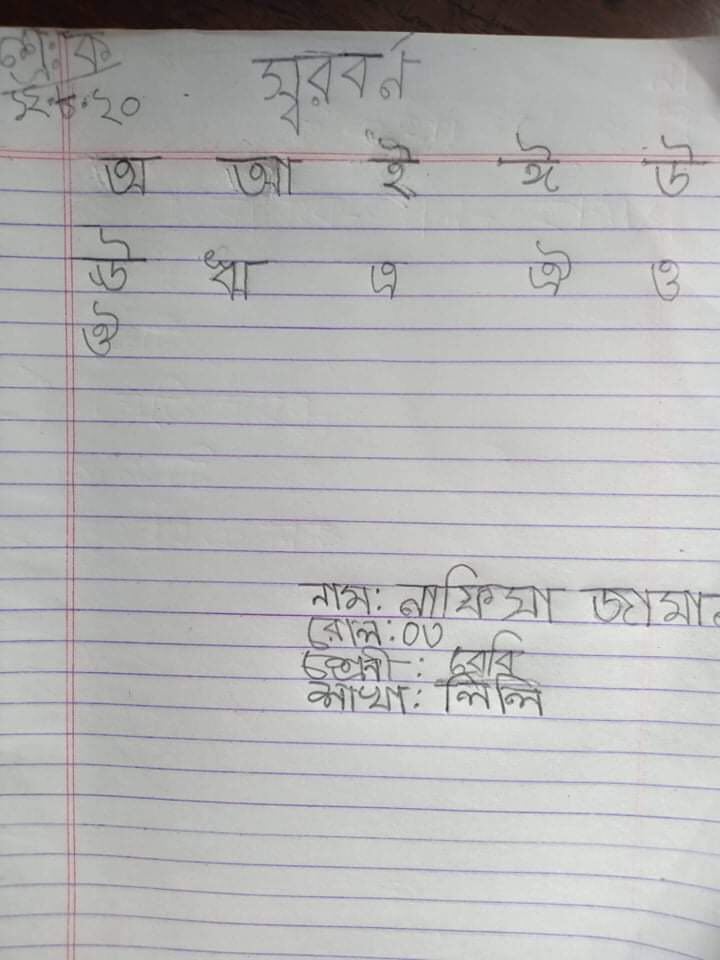 শ্রে: ক
১২.৮.২০
স্বরবর্ন
অ আ ই ঈ উ
ঊ ঋ এ ঐ ও
ঔ
নাম: নাফিসা জামান
রোল: ০৩
শ্রেণী: বেবি
শাখা: লিলি